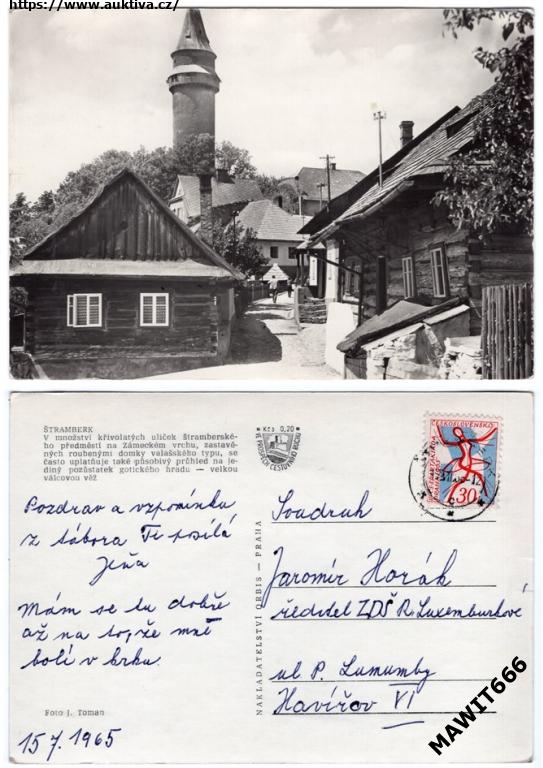 https://www.auktiva.cz/
ŠTRAMBERK
V množství křivolatých uliček štramberské-
ho předměstí na Zámeckém vrchu, zastavě-
ných roubenými domky valašského typu, se
často uplatňuje také působivý průhled na je-
diný pozůstatek gotického hradu — velkou
válcovou věž
Pozdrav a vzpomínku
z tábora Ti posílá
Jiňa
Mám se tu dobře
až na to, že mně
bolí v krku.
Foto J. Toman
15 7. 1965
NAKLADATELSTVÍ ORBIS - PRAHA
Kčs 0,20
VE PROSPĚCH CESTOVNÍHO RUCHU
ČESKOSLOVENSKO
30
Soudruh
Jaromír Horák
ředitel ZDŠ R. Luxemburkové
ul P. Lumumby
Havířov VI
MAWIT666